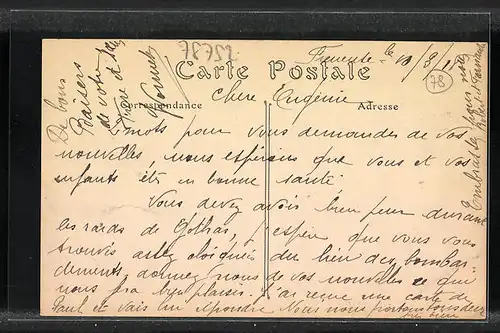 25786
le 10/8/1
Carte Postale
78
Correspondance
Adresse
Chere Eugénie
2 mots pour vous demander de vos
nouvelles, nous espérons que vous et vos
enfants êtes en bonne santé
Vous devez avoir bien peur durant
les raids de Gothas, j'espère que vous vous
trouvés assez éloignés du lieu des bombar-
dements, donnez nous de vos nouvelles ce qui
nous fra bien plaisir. J'ai reçue une carte de
Paul et vais lui répondre Nous nous portons tous deux
très bien
De bons
Baisers
de votre
frère et
Embrassez pour moi